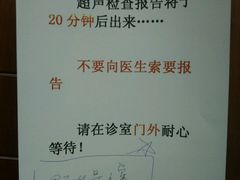 超声检查报告将于
20 分钟后出来……
不要向医生索要报
告
请在诊室门外耐心
等待！